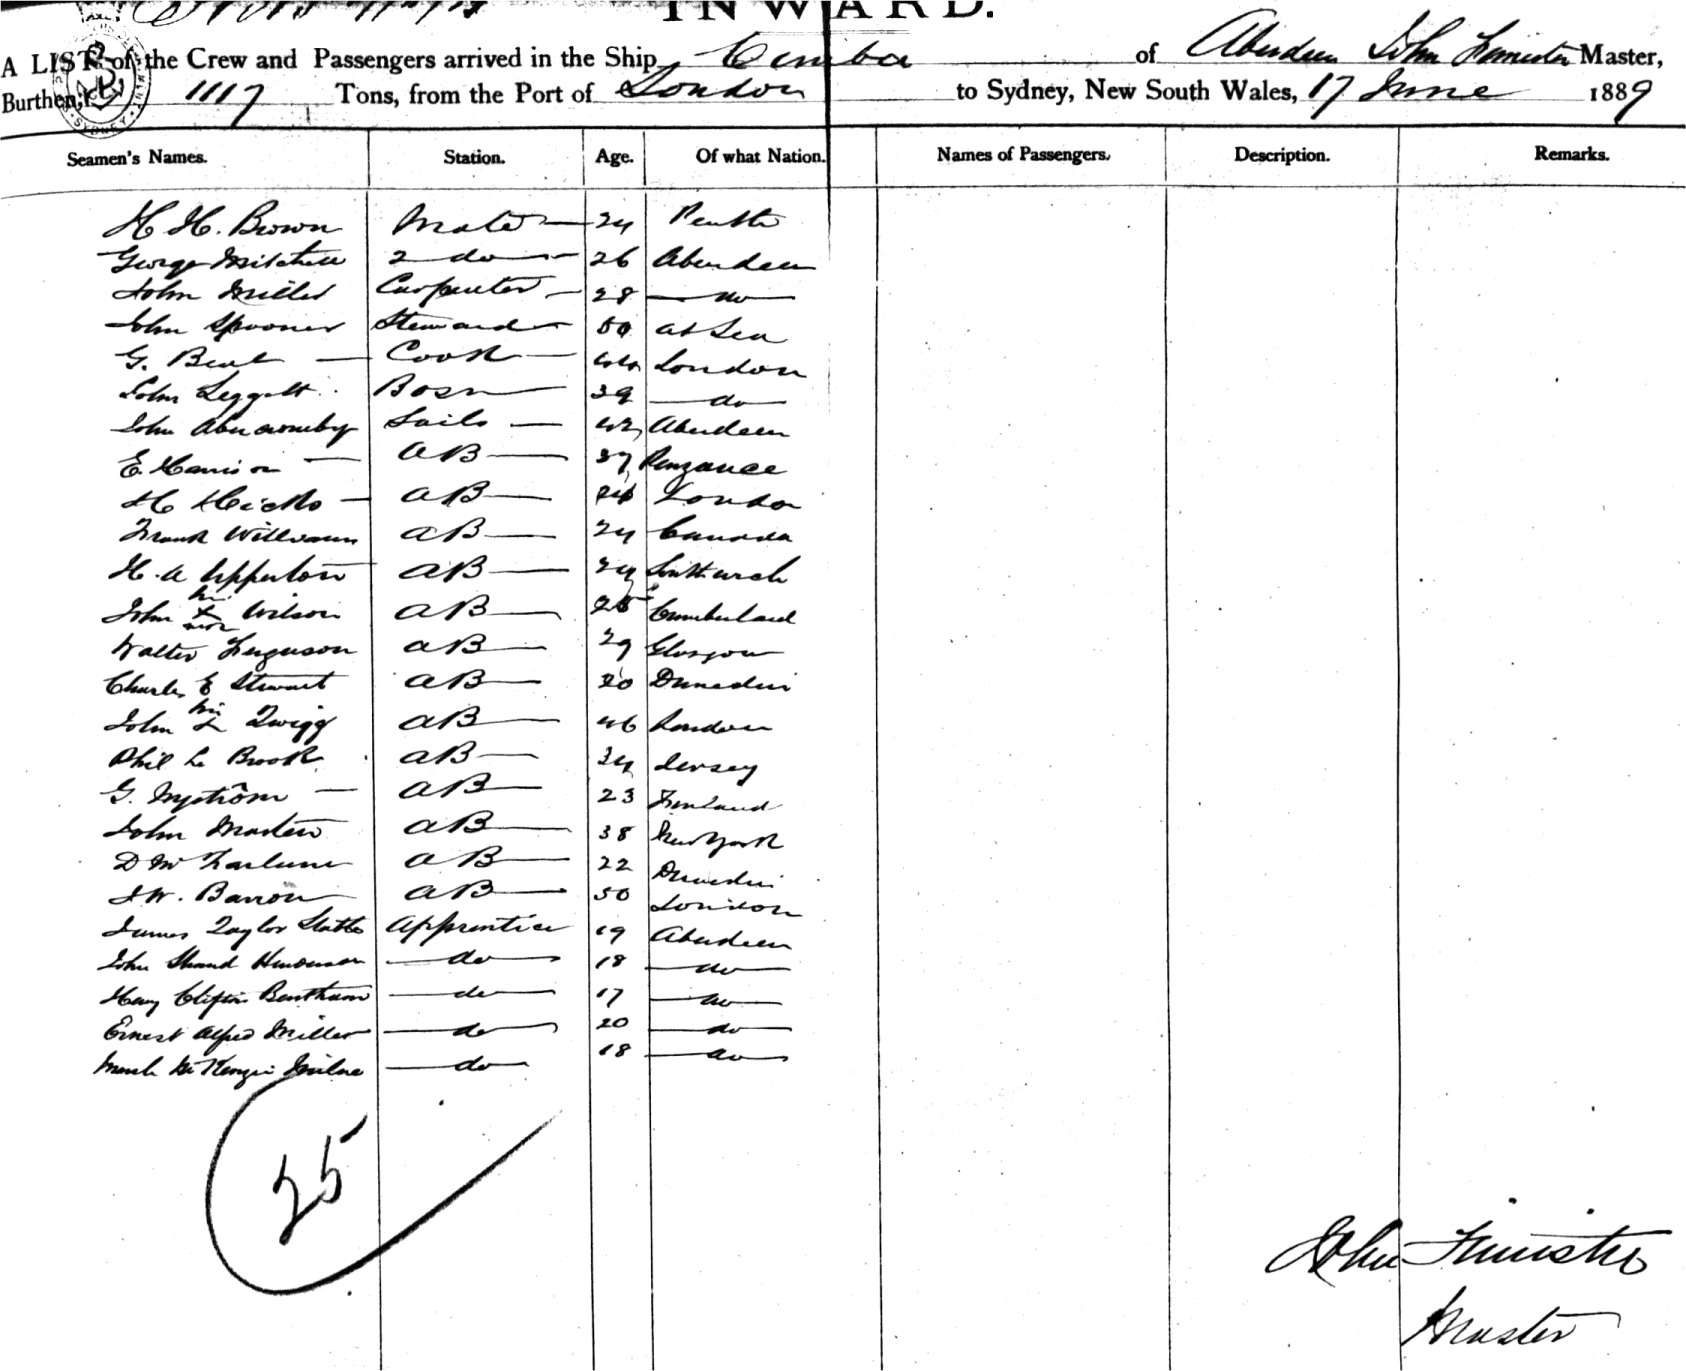 INWARD.
A LIST of the Crew and Passengers arrived in the Ship Cimba of Aberdeen John Fimister Master,
Burthen, 1117 Tons, from the Port of London to Sydney, New South Wales, 17 June 1889
Seamen's Names. Station. Age. Of what Nation. Names of Passengers. Description. Remarks.
H H. Brown Mate 24 Perth
George Mitchell 2 do 26 Aberdeen
John Miller Carpenter 28 do
John Spooner Steward 50 at Sea
G. Beal Cook 44 London
John Leggett Bosn 39 do
John Abercromby Sails 42 Aberdeen
E. Harrison AB 37 Penzance
H Hicks AB London
Frank Williams AB 24 Canada
H. A Upperton AB 24
John his X mark Wilson AB 25 Cumberland
Walter Ferguson AB 29 Glasgow
Charles E Stewart AB 20 Dunedin
John his X Twigg AB 46 London
Phil Le Brook AB 34 Jersey
G. Nyström AB 23 Finland
John Martin AB 38 New York
D McFarlane AB 22 Dunedin
J W. Barron AB 50 London
James Taylor Apprentice 19 Aberdeen
John Shand Henderson do 18 do
Harry Clifton Bentham do 17 do
Ernest Alfred Miller do 20 do
McKenzie Milne do 18 do
25
John Fimister
Master